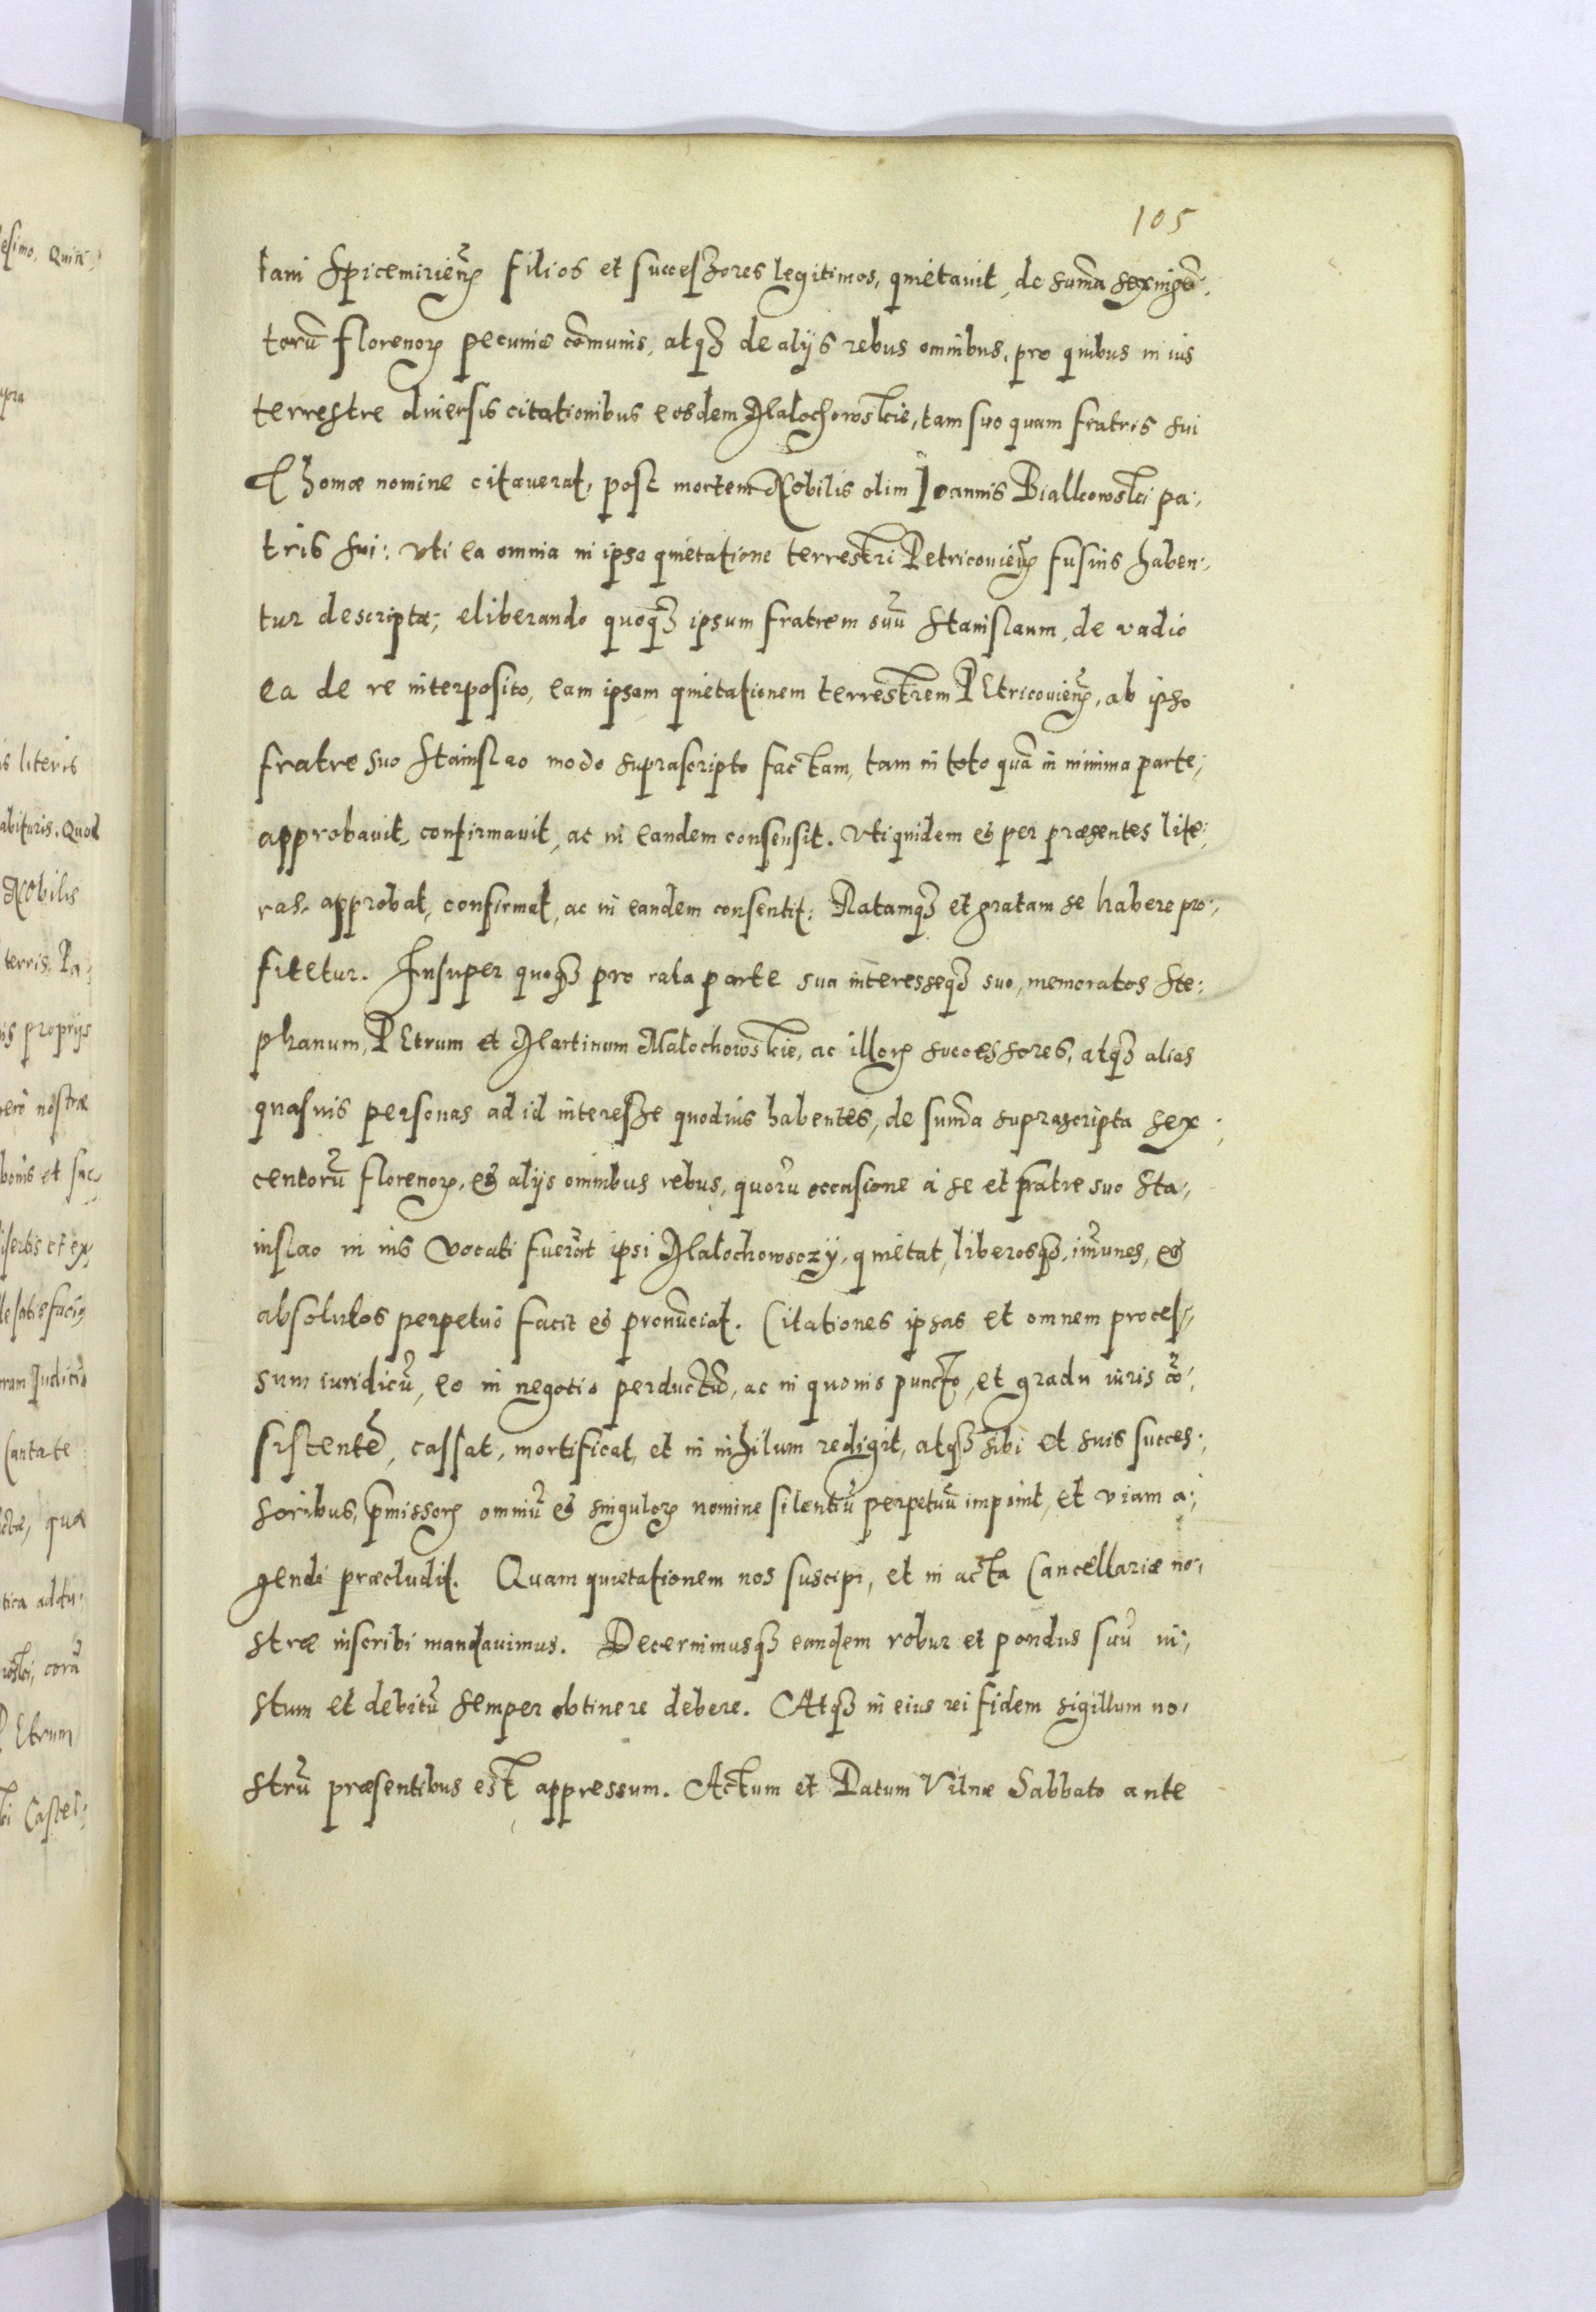 105
tani Spicemirieñ filios et successores legitimos, quietavit, de suma sexingẽ-
torũ florenoꝝ pecuniæ cõmunis, atqꝫ de alijs rebus omnibus, pro quibus in ius
terrestre diuersis citationibus eosdem Małochowskie, tam suo quam fratris sui
Thomæ nomine citauerat, post mortem Nobilis olim Ioannis Bialkowski pa-
tris sui: vti ea omnia in ipsa quietatione terrestri Petricouieñ fusius haben-
tur descripta; eliberando quoqꝫ ipsum fratrem suũ Stanislaum, de vadio
ea de re interposito, eam ipsam quietationem terrestrem PEtricouieñ, ab ipso
fratre suo Stanislao modo suprascripto factam, tam in toto quã in minima parte,
approbauit, confirmauit, ac in eandem consensit. Vti quidem & per præsentes lite-
ras approbat, confirmat, ac in eandem consentit: Ratamqꝫ et gratam se habere pro-
fitetur. Insuper quoqꝫ pro rata parte sua interesseqꝫ suo, memoratos Ste-
phanum, PEtrum et Martinum Małochowskie, ac illoꝝ successores, atqꝫ alias
quasuis personas ad id interesse quoduis habentes, de suma suprascripta sex-
centorũ florenoꝝ, & alijs omnibus rebus, quorũ occasione à se et fratre suo Sta-
nislao in ius vocati fuerãt ipsi Małochowsczÿ, quietat, liberosqꝫ, imũnes, &
absolutos perpetuò facit & pronũciat. Citationes ipsas et omnem proces-
sum iuridicũ, eo in negotio perductũ, ac in quouis puncto, et gradu iuris cõ-
sistentẽ, cassat, mortificat, et in nihilum redigit, atqꝫ sibi et suis succes-
soribus, p̃missoꝝ omniũ & singuloꝝ nomine silentiũ perpetuũ imponit, et viam a-
gendi præcludit. Quam quietationem nos suscipi, et in acta Cancellariæ no-
stræ inscribi mandauimus. Decernimusqꝫ eandem robur et pondus suũ iu-
stum et debitũ semper obtinere debere. Atqꝫ in eius rei fidem sigillum no-
strũ præsentibus est appressum. Actum et Datum Vilnæ Sabbato ante